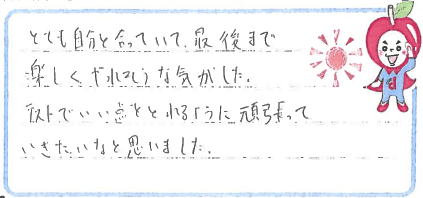 とても自分と合っていて、最後まで
楽しくやれそうな気がした。
テストでいい点をとれるように頑張って
いきたいなと思いました。